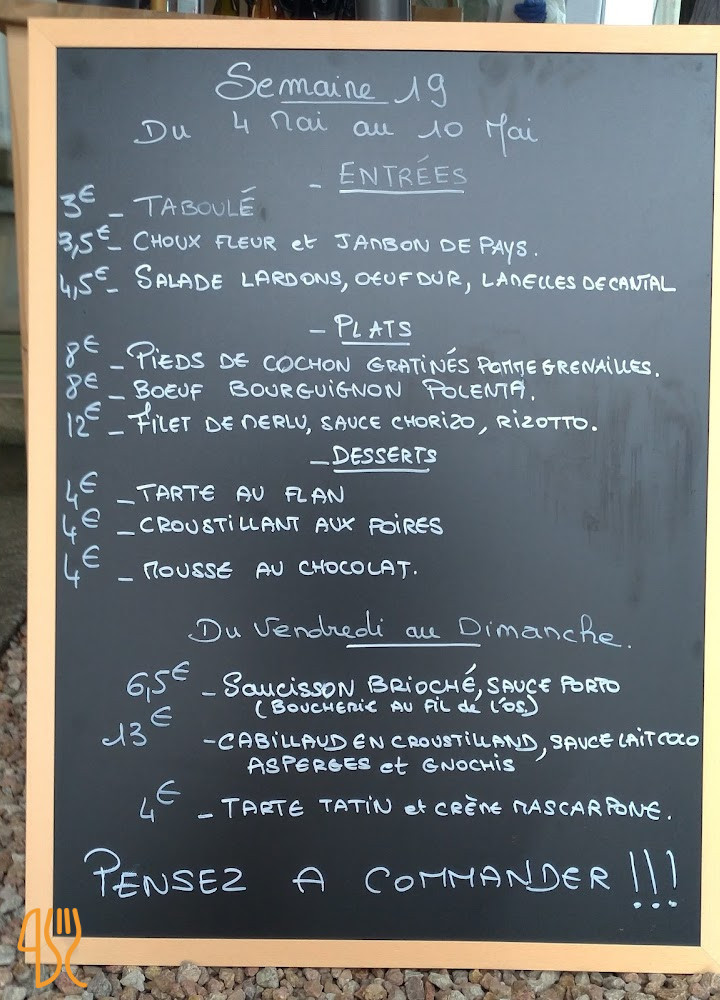 Semaine 19
Du 4 Mai au 10 Mai
- ENTRÉES
3€ - TABOULÉ
3,5€ - CHOUX FLEUR et JAMBON DE PAYS.
4,5€ - SALADE LARDONS, OEUF DUR, LAMELLES DE CANTAL
- PLATS
8€ - PIEDS DE COCHON GRATINÉS POMME GRENAILLES.
8€ - BOEUF BOURGUIGNON POLENTA.
12€ - FILET DE MERLU, SAUCE CHORIZO, RIZOTTO.
- DESSERTS
4€ - TARTE AU FLAN
4€ - CROUSTILLANT AUX POIRES
4€ - MOUSSE AU CHOCOLAT.
Du Vendredi au Dimanche.
6,5€ - SAUCISSON BRIOCHÉ, SAUCE PORTO
(BOUCHERIE AU FIL de L'OS)
13€ - CABILLAUD EN CROUSTILLAND, SAUCE LAIT COCO
ASPERGES et GNOCHIS
4€ - TARTE TATIN et CRÈME MASCARPONE.
PENSEZ A COMMANDER !!!